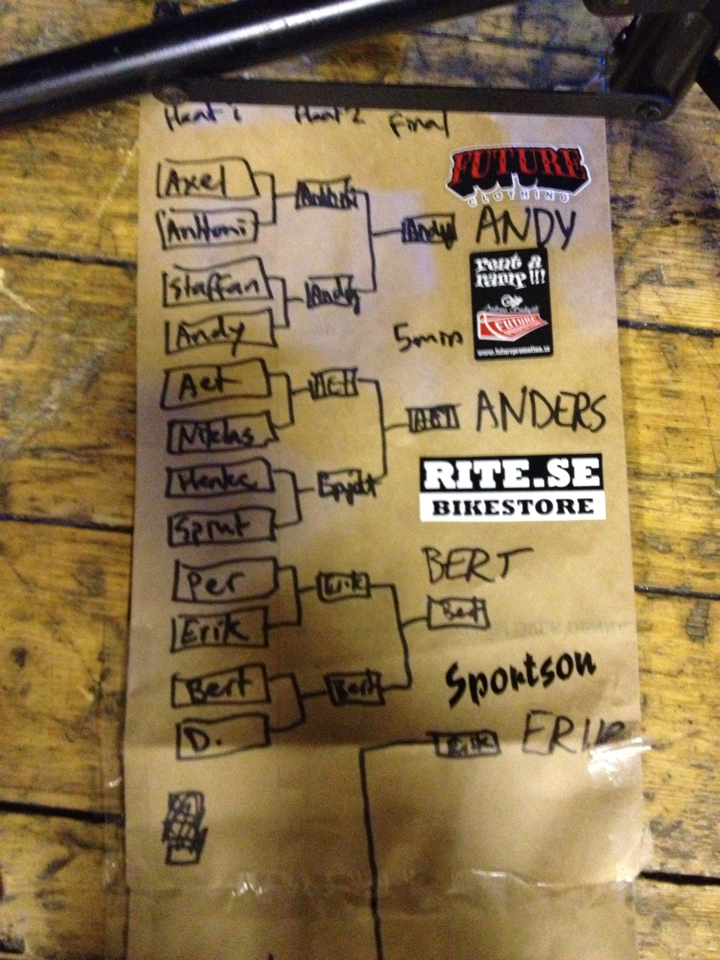 Heat 1 Heat 2 Final
FUTURE
CLOTHING
Axel
Anttoni
Anttoni
Andy ANDY
Staffan
Andy
Andy
rent a
ramp!!!
FUTURE
www.futurepromotion.se
5min
Aet
Niklas
ANDERS
Sprut
RITE.SE
BIKESTORE
Per
Erik
Erik
BERT
Bert
Bert
Bert
D.
Sportson
Erik